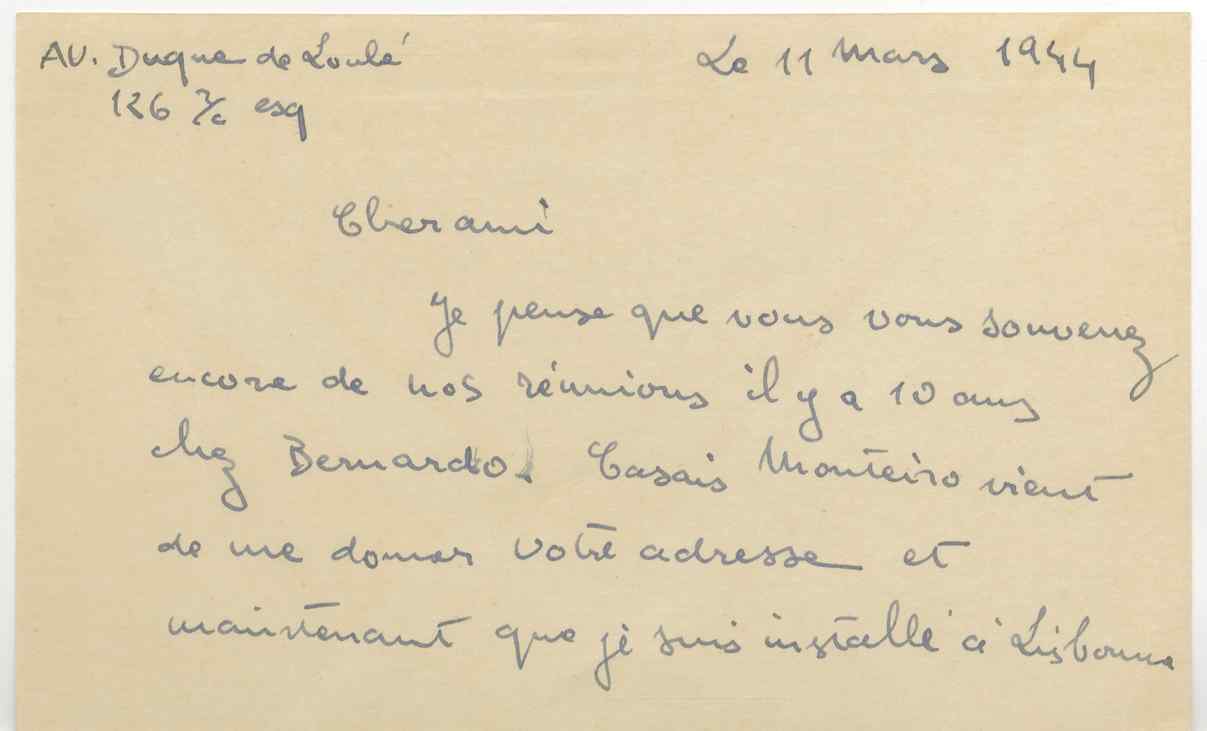 AV. Duque de Loulé Le 11 Mars 1944
126 r/c esq
Cher ami
Je pense que vous vous souvenez
encore de nos réunions il y a 10 ans
chez Bernardo. Casais Monteiro vient
de me donner votre adresse et
maintenant que je suis installé à Lisbonne